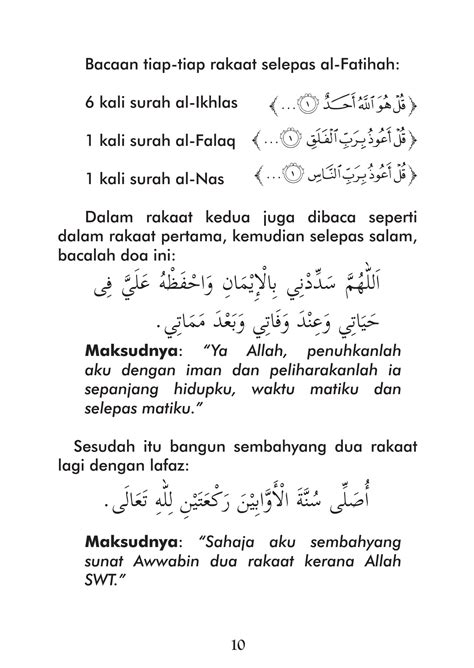 Bacaan tiap-tiap rakaat selepas al-Fatihah:
6 kali surah al-Ikhlas ﴿ قُلْ هُوَ ٱللَّهُ أَحَدٌ ۝١ ... ﴾
1 kali surah al-Falaq ﴿ قُلْ أَعُوذُ بِرَبِّ ٱلْفَلَقِ ۝١ ... ﴾
1 kali surah al-Nas ﴿ قُلْ أَعُوذُ بِرَبِّ ٱلنَّاسِ ۝١ ... ﴾
Dalam rakaat kedua juga dibaca seperti
dalam rakaat pertama, kemudian selepas salam,
bacalah doa ini:
اَللّٰهُمَّ سَدِّدْنِي بِالْإِيْمَانِ وَاحْفَظْهُ عَلَيَّ فِى
حَيَاتِي وَعِنْدَ وَفَاتِي وَبَعْدَ مَمَاتِي.
Maksudnya: “Ya Allah, penuhkanlah
aku dengan iman dan peliharakanlah ia
sepanjang hidupku, waktu matiku dan
selepas matiku.”
Sesudah itu bangun sembahyang dua rakaat
lagi dengan lafaz:
أُصَلِّى سُنَّةَ الْأَوَّابِيْنَ رَكْعَتَيْنِ لِلّٰهِ تَعَالَى.
Maksudnya: “Sahaja aku sembahyang
sunat Awwabin dua rakaat kerana Allah
SWT.”
10